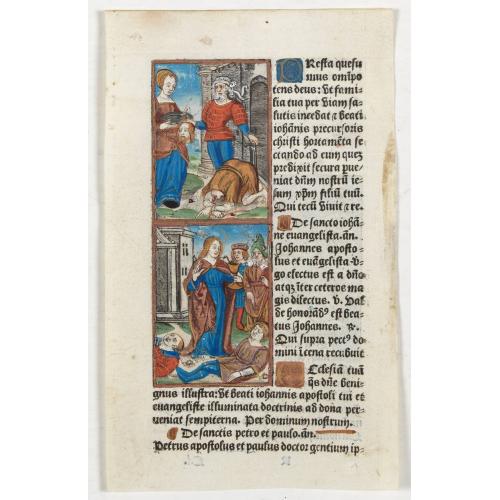 PResta quesu
mus omīpo
tens deus: vt fami⸗
lia tua per viam sa⸗
lutis incedat ⁊ beati
iohānis precursoris
christi hortamēta se
ctando ad eum quez
predixit secura pue⸗
niat dn̄m nostrū ie⸗
sum xp̄m filiū tuū.
Qui tecū viuit ⁊ re.
De sancto iohā⸗
ne euangelista. añ.
Johannes aposto⸗
lus et euāgelista v⸗
go electus est a dn̄o
atqz īter ceteros ma
gis dilectus. v. Val
de honorādꝰ est bea⸗
tus Johannes. ⁊.
Qui supra pectꝰ do⸗
mini ī cena recubuit
ECclesiā tuā
qs̄ dn̄e beni⸗
gnus illustra: vt beati iohannis apostoli tui et
euangeliste illuminata doctrinis ad dona per⸗
ueniat sempiterna. Per dominum nostrum.
De sanctis petro et paulo. añ.
Petrus apostolus et paulus doctor gentium ip⸗